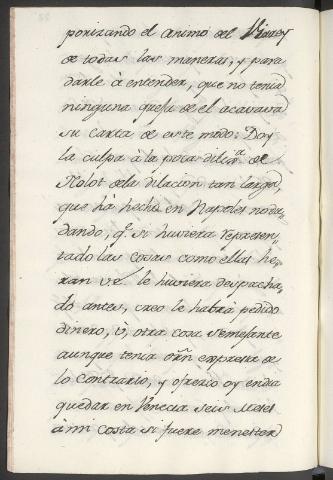 porizando el animo del Virrey
de todas las maneras, y para
darle à entender, que no tenia
ninguna quexa de el acavava
su carta de este modo: Doy
la culpa à la poca dilig.ª de
Nolot de la dilacion tan larga,
que hà hecho en Napoles no du-
dando, q.e si huviera represen-
tado las cosas como ellas he-
ran V.E. le huviera despacha-
do antes, creo le habrà pedido
dinero, ù, otra cosa semejante
aunque tenia orñ expresa de
lo contrario, y ofrezio oy en dia
quedar en Venecia seis meses
à mi costa si fuere menester